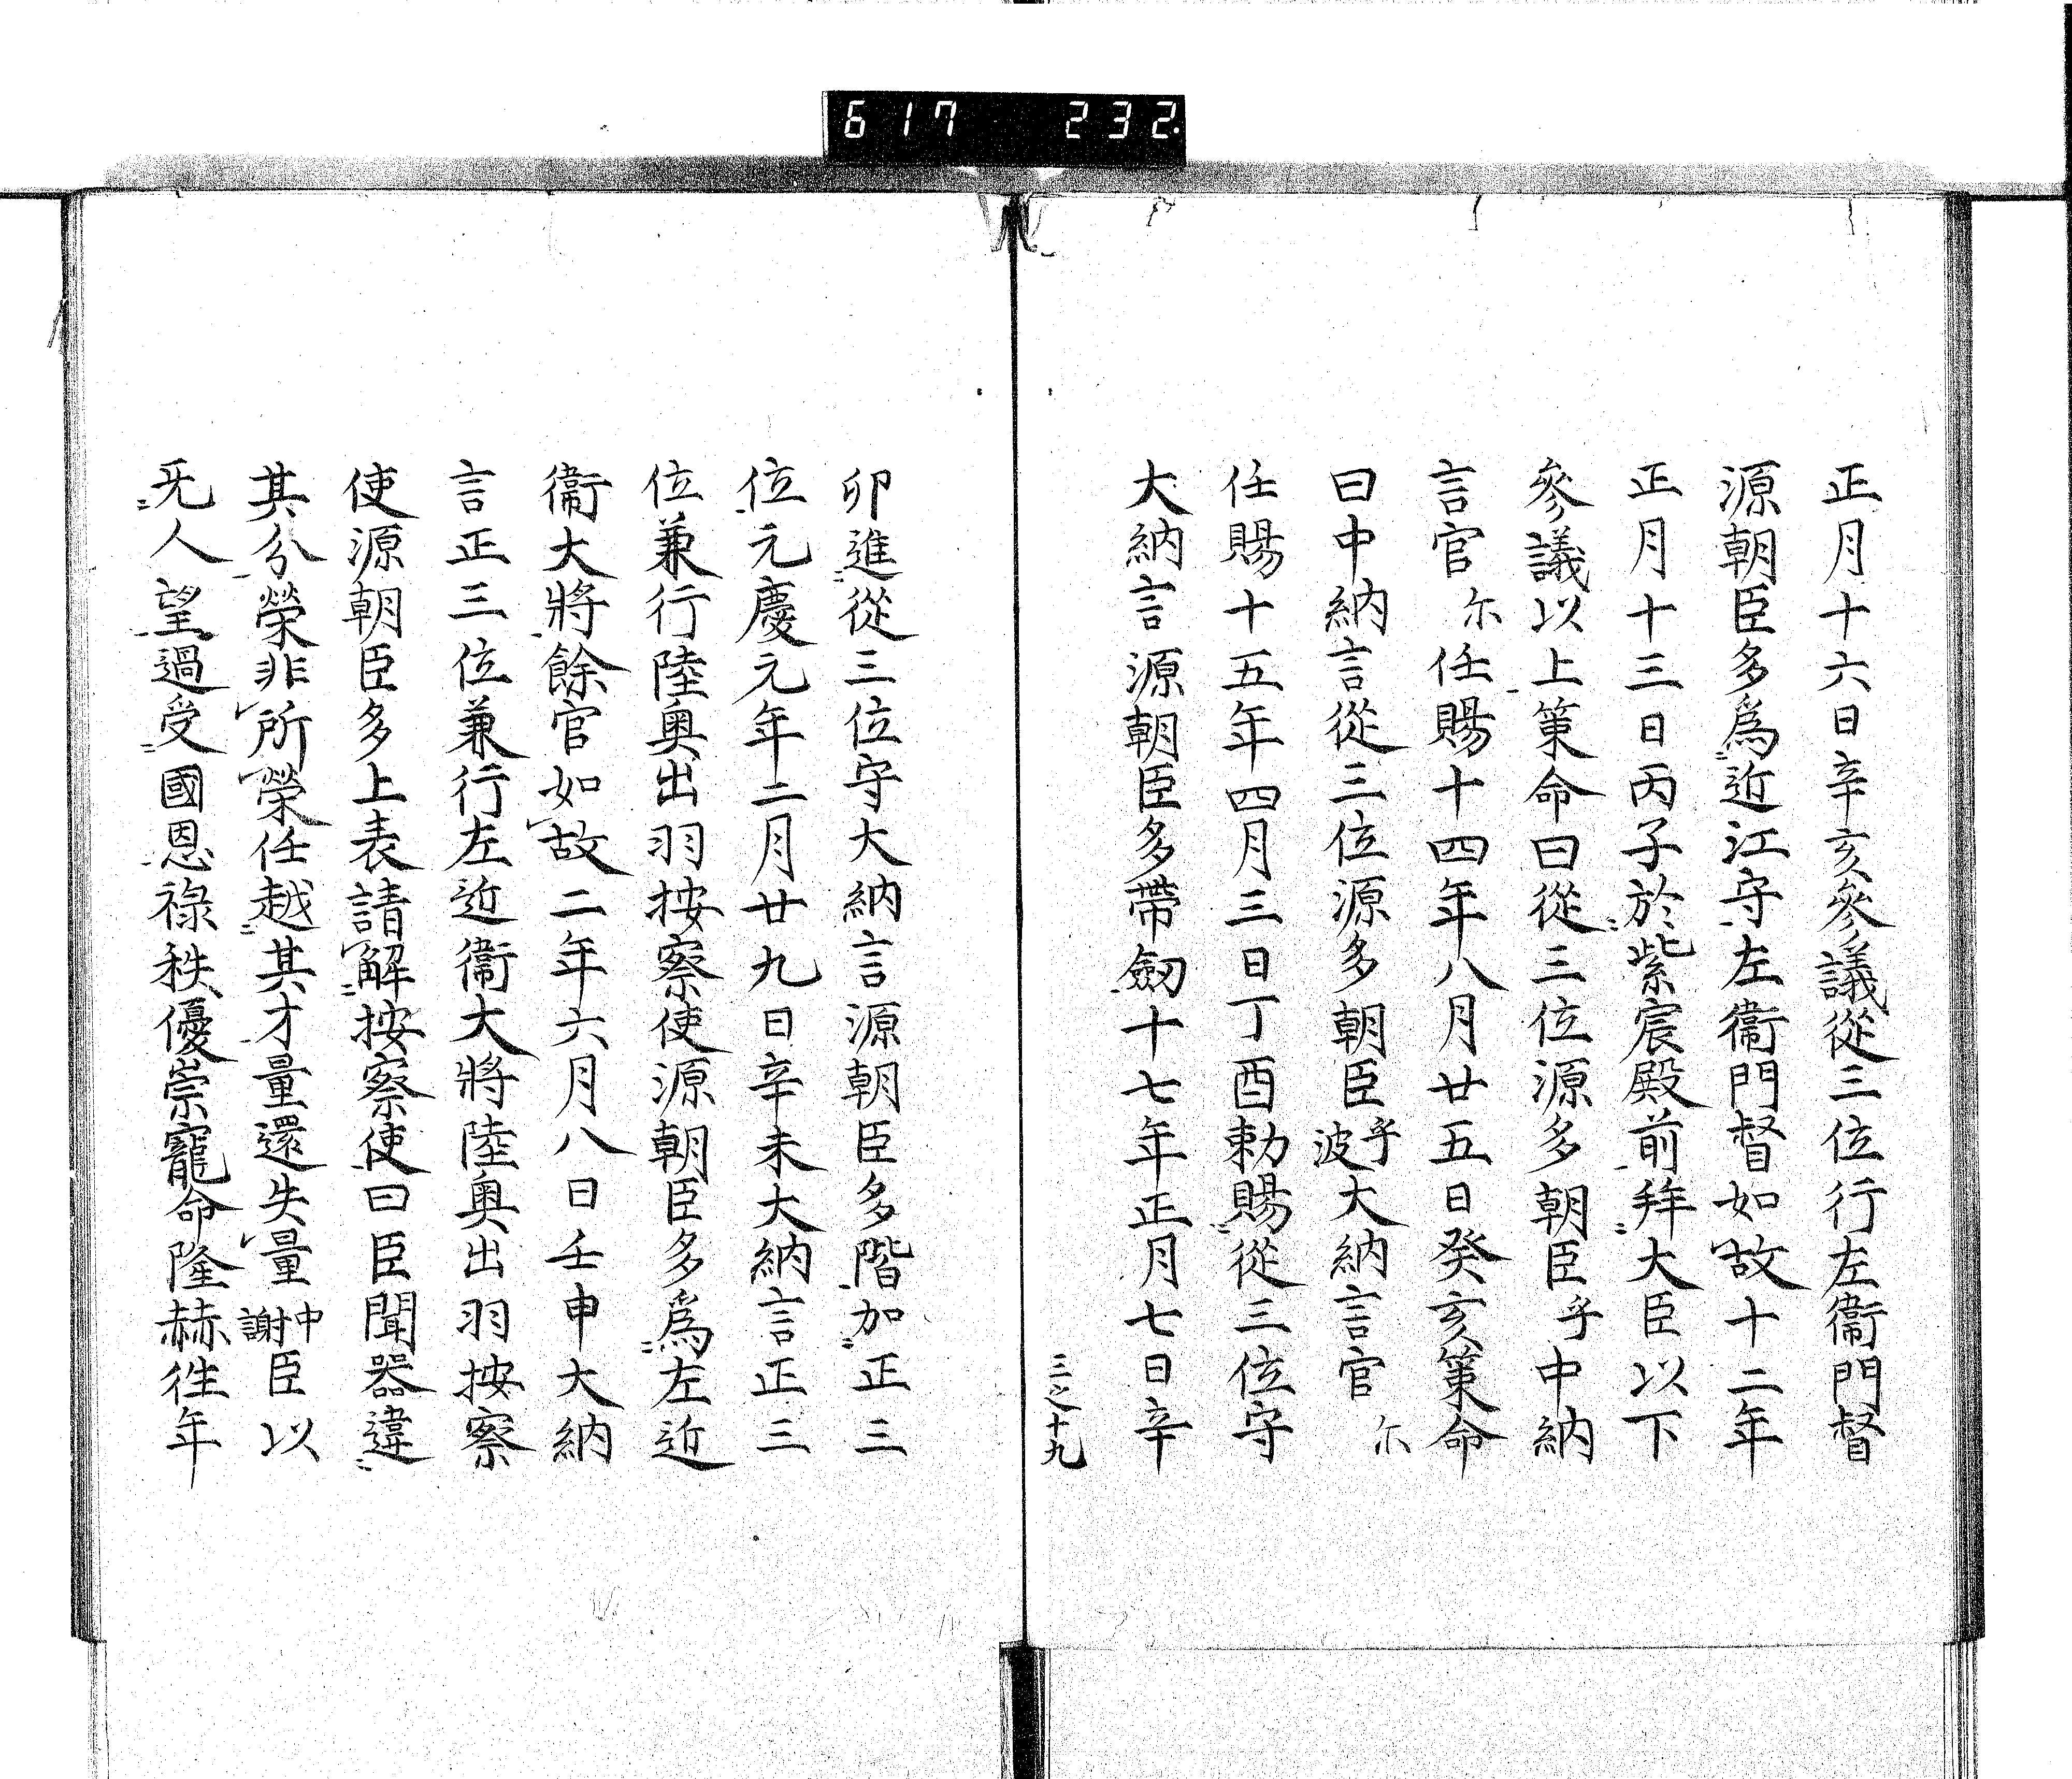 617 232.
正月十六日辛亥參議從三位行左衞門督
源朝臣多爲近江守左衞門督如故十二年
正月十三日丙子於紫宸殿前拜大臣以下
參議以上策命曰從三位源多朝臣乎中納
言官尓任賜十四年八月廿五日癸亥策命
曰中納言從三位源多朝臣乎波大納言官尓
任賜十五年四月三日丁酉勅賜從三位守
大納言源朝臣多帶劔十七年正月七日辛
三之十九
卯進從三位守大納言源朝臣多階加正三
位元慶元年二月廿九日辛未大納言正三
位兼行陸奥出羽按察使源朝臣多爲左近
衞大將餘官如故二年六月八日壬申大納
言正三位兼行左近衞大將陸奥出羽按察
使源朝臣多上表請解按察使曰臣聞器違
其分榮非所榮任越其才量還失量中謝臣以
旡人望過受國恩祿秩優崇寵命隆赫徃年